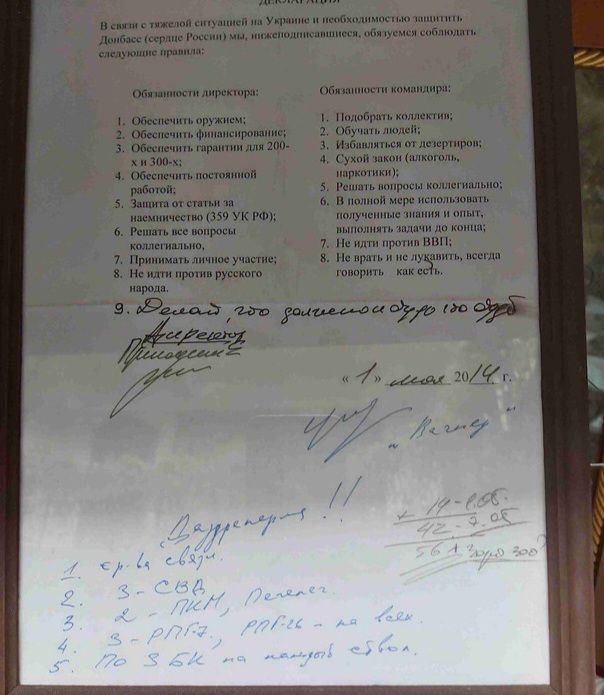 ДЕКЛАРАЦИЯ
В связи с тяжелой ситуацией на Украине и необходимостью защитить
Донбасс (сердце России) мы, нижеподписавшиеся, обязуемся соблюдать
следующие правила:
Обязанности директора:
1. Обеспечить оружием;
2. Обеспечить финансирование;
3. Обеспечить гарантии для 200-
х и 300-х;
4. Обеспечить постоянной
работой;
5. Защита от статьи за
наемничество (359 УК РФ);
6. Решать все вопросы
коллегиально,
7. Принимать личное участие;
8. Не идти против русского
народа.
Обязанности командира:
1. Подобрать коллектив;
2. Обучать людей;
3. Избавляться от дезертиров;
4. Сухой закон (алкоголь,
наркотики);
5. Решать вопросы коллегиально;
6. В полной мере использовать
полученные знания и опыт,
выполнять задачи до конца;
7. Не идти против ВВП;
8. Не врать и не лукавить, всегда
говорить как есть.
9. Делай, что должно и будь что будет
Директор
Пригожин Е
«1» мая 2014 г.
"Вагнер"
!!
1. ср-ва связи.
2. 3-СВД
3. 2-ПКМ, Печенег.
4. 3-РПГ-7, РПГ-26 - на всех.
5. По 3 БК на каждый ствол.